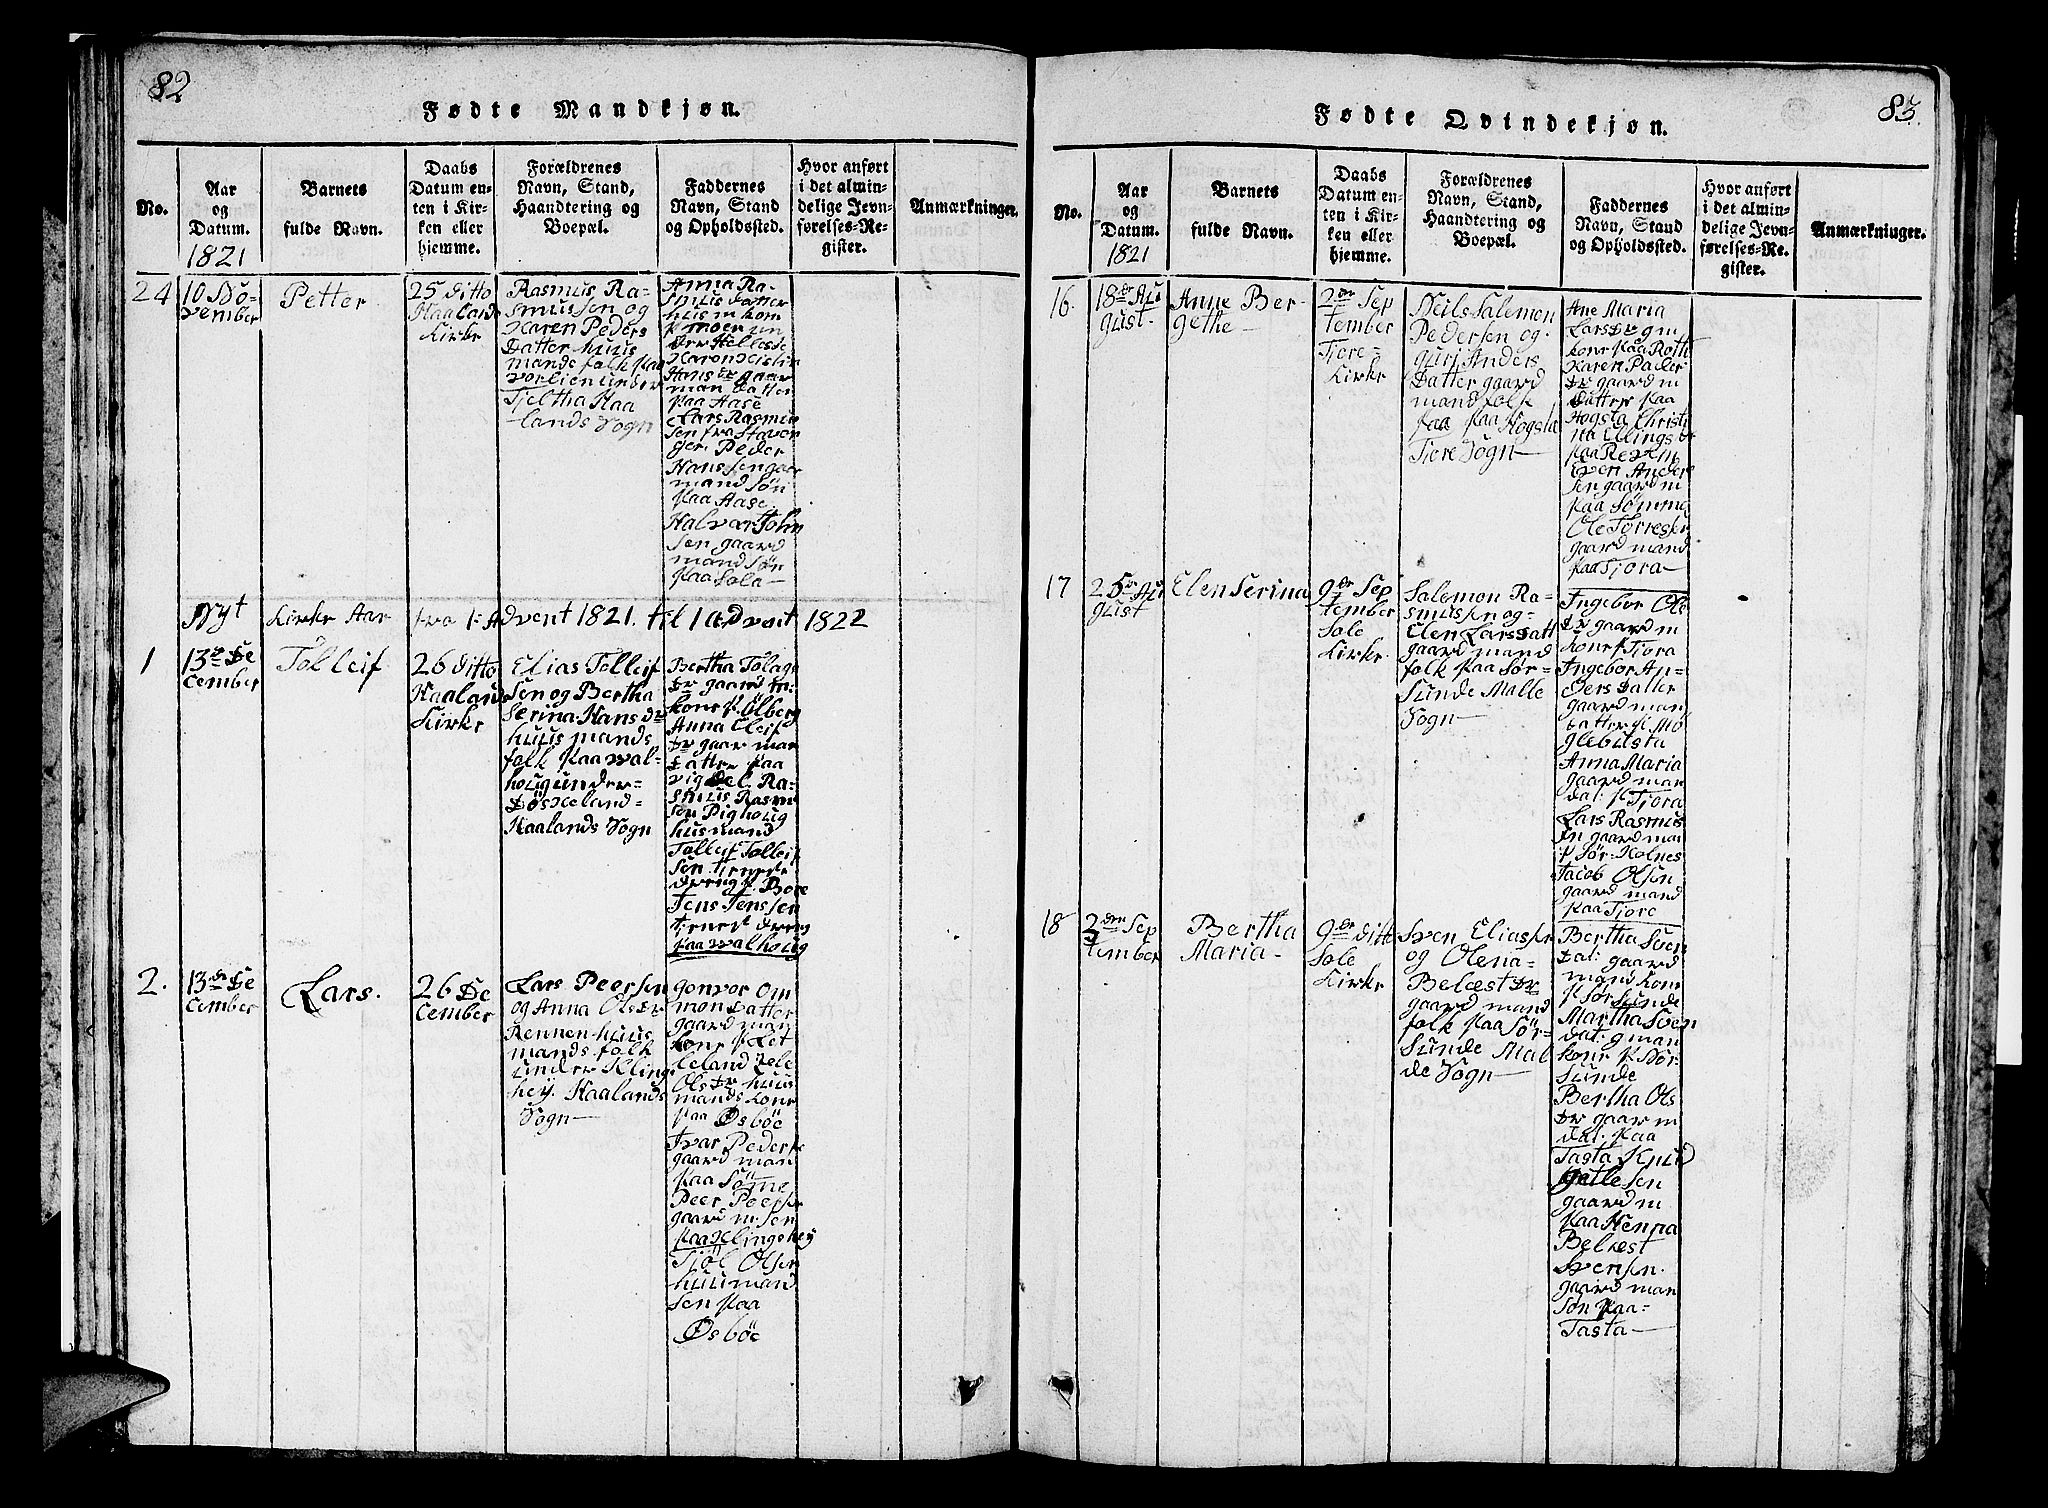 82
Fødte Mandkjøn.
No.
Aar
og
Datum.
1821
Barnets
fulde Navn.
Daabs
Datum en-
ten i Kir-
ken eller
hjemme.
Forældrenes
Navn, Stand,
Haandtering og
Boepæl.
Faddernes
Navn, Stand
og Opholdssted.
Hvor anført
i det almin-
delige Jevn-
førelses-Re-
gister.
Anmærkninger.
24
10 No-
vember
Petter
25 ditto
Haalands
Kirke
Rasmus Ra-
smussen og
Karen Peders
Datter huus
mands folk paa
under
Tjeltha Haa
lands Sogn
Anna Ra-
smus datter
Hans Dr gaar
man datter
paa Aase
Lars Rasmu
sen fra Stavan
ger Peder
Hanssen gaar
mand Søn
paa Aase
Halvar John
sen gaard
mand søn
paa Sola
Nyt Kirke Aar fra 1. Advent 1821. til 1 advent 1822
1
13de De
cember
Tolleif
26 ditto
Haalands
Kirke
Elias Tolleif
sen og Bertha
Serina Hans dr
huus mands
folk paa wal-
houg under-
Døskeland-
Haalands Sogn
Bertha
Dr gaard
kone p. Ølberg
Anna Eleif
Dr gaar man
Datter paa
vigdel Ra-
smus Rasmu
sen
husmand
Tolleif Tolleif
sen tjeneste
dreng p. Bore
Jens Jenssen
tjenest dreng
paa walhoug
2.
13de De
cember
Lars.
26 De
cember
Lars Peersen
og Anna Olsdr
Rennen huus
mands folk
under Kling
hey Haalands
Sogn
gonvor Om
mon Datter
gaard man
kone p.
leland
Ols Dr huus
mands kone
paa Øsbøe
Ivar Peders
gaard man
paa Sømme
Peer Peerse
gaard m sen
paa Klingshey
Olsen
huusmand
sen paa
Øsbøe
83.
Fødte Qvindekjøn.
No.
Aar
og
Datum.
1821
Barnets
fulde Navn.
Daabs
Datum en-
ten i Kir-
ken eller
hjemme.
Forældrenes
Navn, Stand,
Haandtering og
Boepæl.
Faddernes
Navn, Stand
og Opholdssted.
Hvor anført
i det almin-
delige Jevn-
førelses-Re-
gister.
Anmærkninger.
16
18de Au
gust
Anne Ber-
gethe
2den Sep
tember
Tjore-
Kirke
Neils Salemon
Pedersen og
guri Anders
Datter gaard
mand folk
paa Hogsta
Tjore Sogn
Ane Maria
Lars Dr g m
kone paa Roth
Karen Peder
Dr gaard m
Datter paa
Hogsta Christi
na Ellings Dr
Sven Ander
sen gaard m
paa Sømme
Ole Torresen
gaard mand
paa Tjora
17
25de Au
gust
Elen Serina
9de Sep
tember
Sole
Kirke
Salemon Ra-
smussen og
Elen Lars datt
gaard mand
folk paa Sør-
Sunde Malle
Sogn
Ingebor Ole
Dr gaard m
kone p Tjora
Ingebor An-
ders Datter
gaard man
datter p. Mø
glebusta
Anna Maria
gaard man
dat: p Tjora
Lars Rasmus
sen gaard man
p Sør-Kolnes
Jacob Olsen
gaard mand
paa Tjore
18
3den Sep
tember
Bertha
Maria
9de ditto
Sole
Kirke
Sven Eliasen
og Olena
Belæst Dr
gaard mand
folk paa Sør-
Sunde Mal
de Sogn
Bertha Sven
Dat: gaard
mand kone
p Sør Sunde
Martha Sven
dat: g man
kone p Nør-
Sunde
Bertha Ols
Dr gaar m
dat: paa
Tasta Knud
gaard m
paa Henna
Belæst
Svensen
gaard man
søn paa-
Tasta